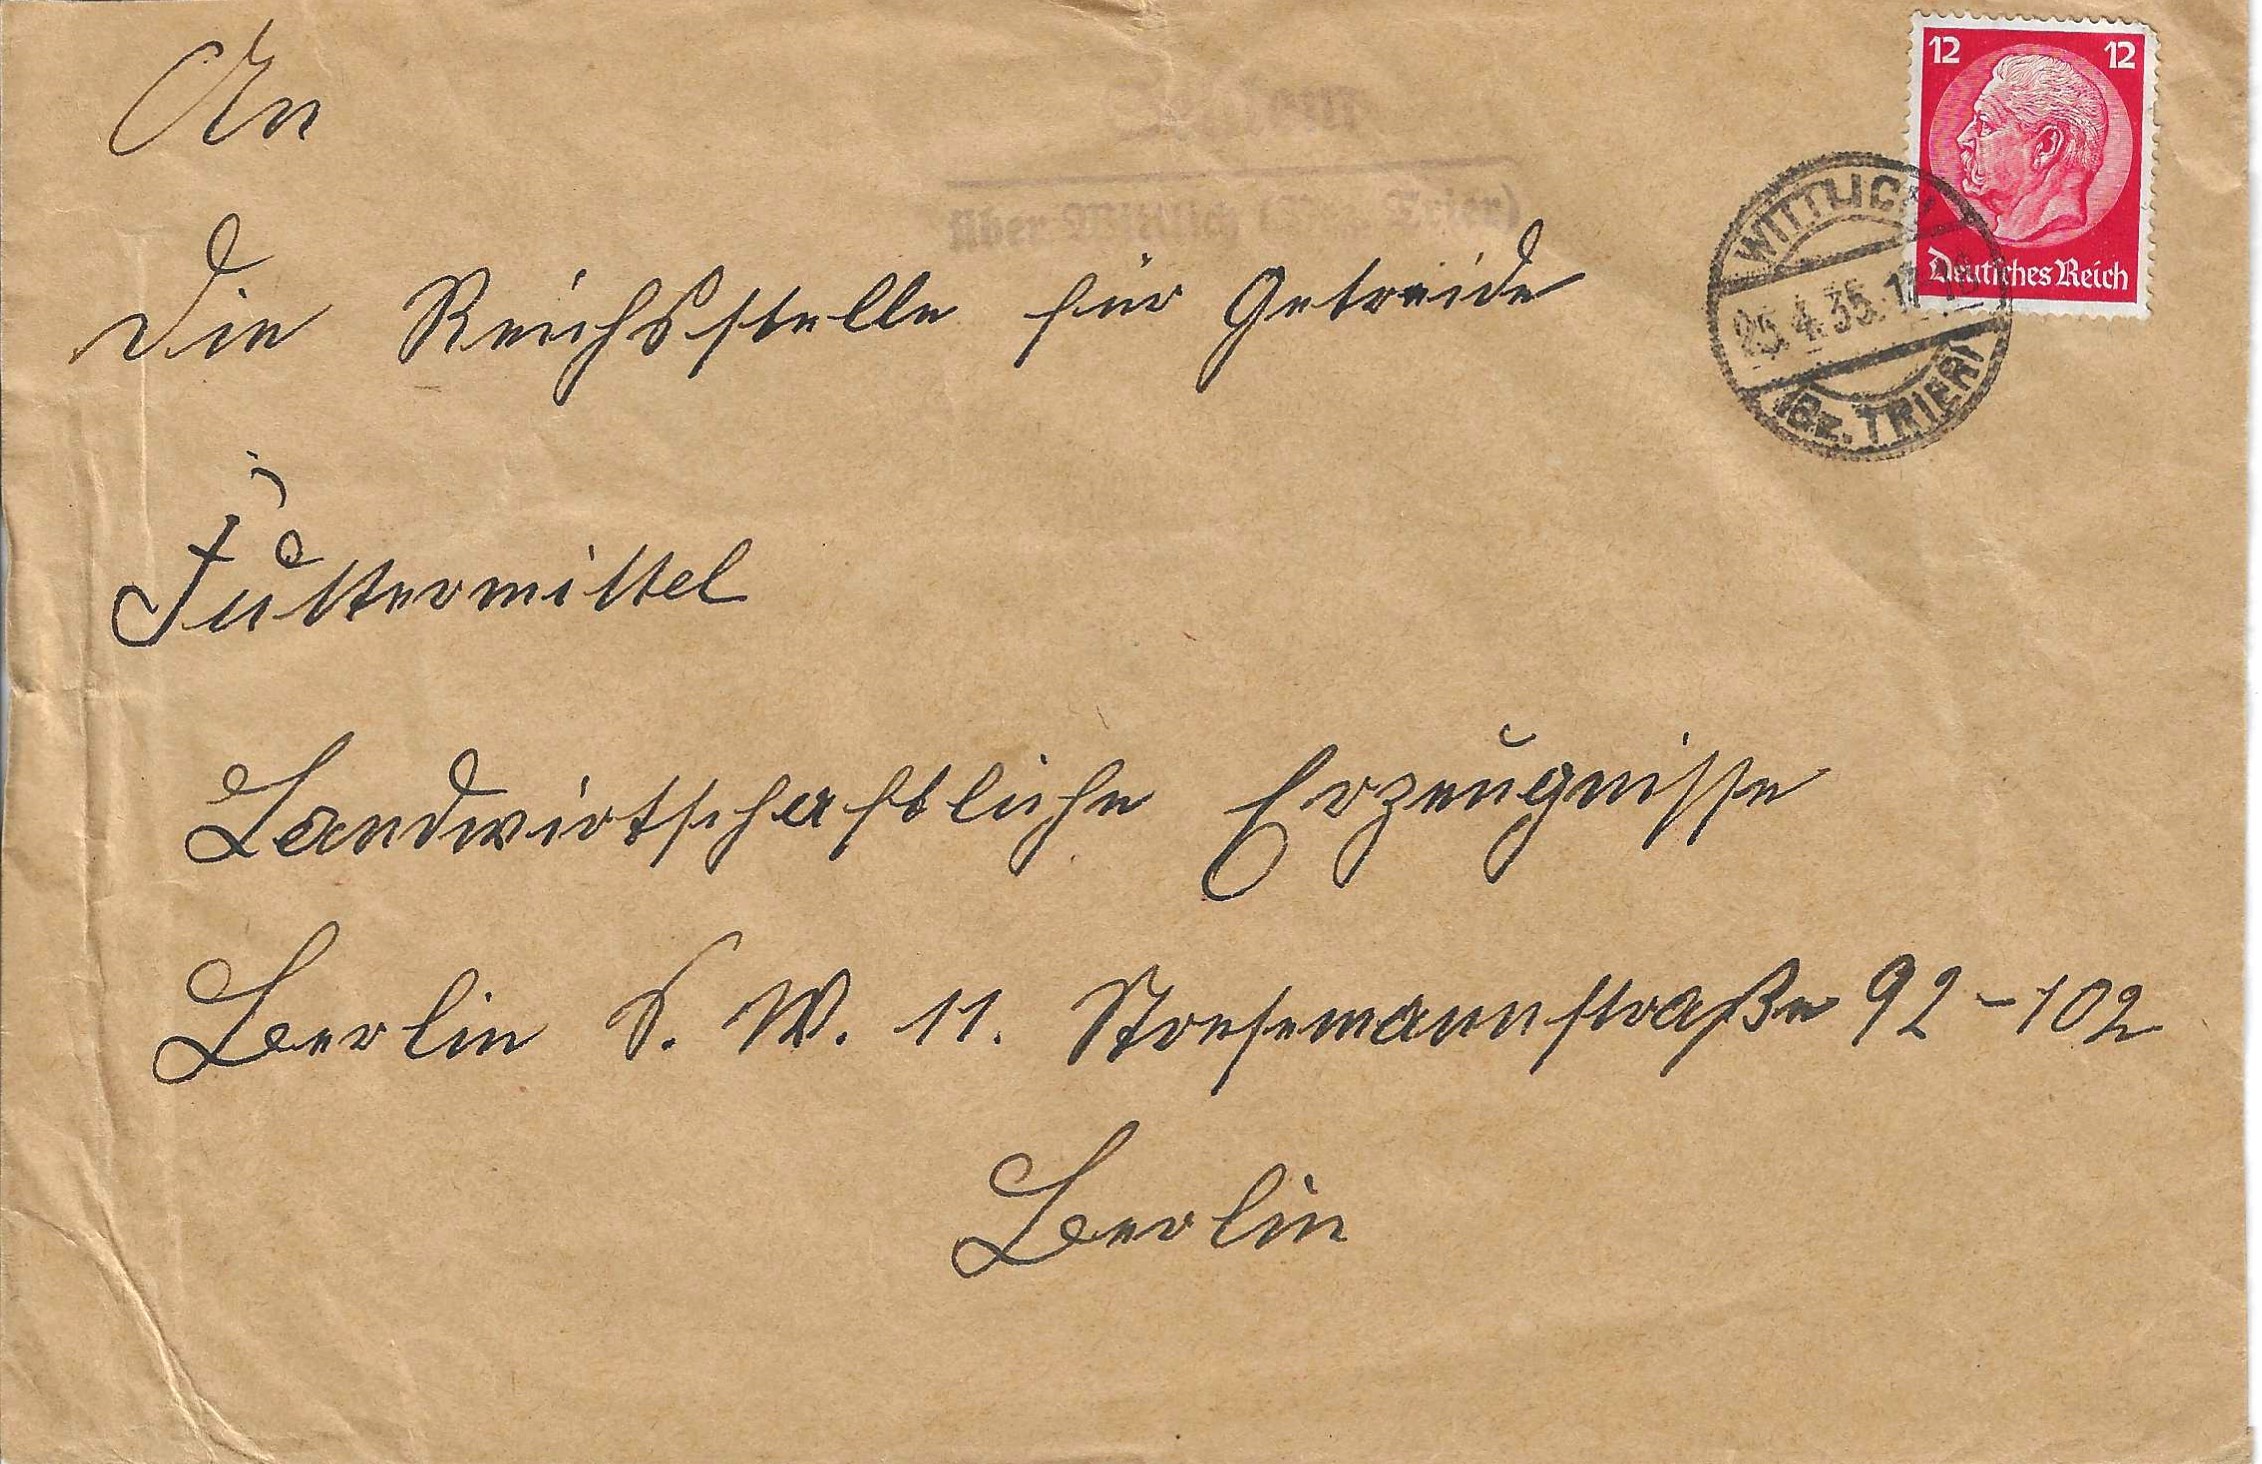 12 12
Deutsches Reich
WITTLICH
25.4.35.17
(Bz. TRIER)
über Wittlich (Bez. Trier)
An
Die Reichsstelle für Getreide
Futtermittel
Landwirtschaftliche Erzeugnisse
Berlin S. W. 11. Stresemannstraße 92-102
Berlin